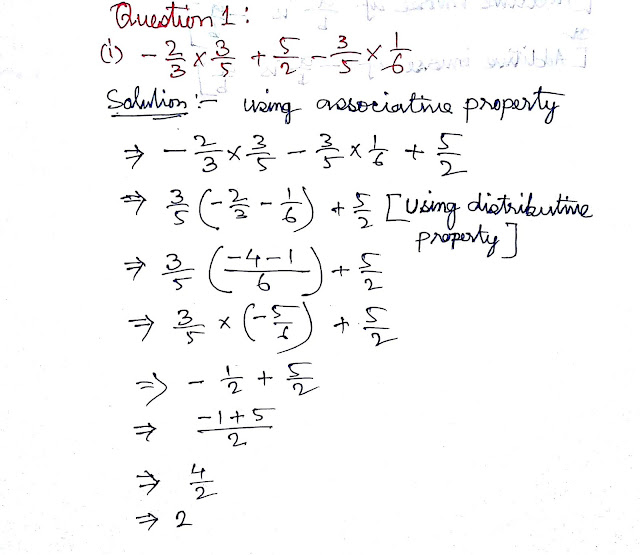 Question 1:
(i) - 2/3 × 3/5 + 5/2 - 3/5 × 1/6
Solution:- using associative property
⇒ - 2/3 × 3/5 - 3/5 × 1/6 + 5/2
⇒ 3/5 (-2/3 - 1/6) + 5/2 [Using distributive
property]
⇒ 3/5 ((-4-1)/6) + 5/2
⇒ 3/5 × (-5/6) + 5/2
⇒ - 1/2 + 5/2
⇒ (-1+5)/2
⇒ 4/2
⇒ 2